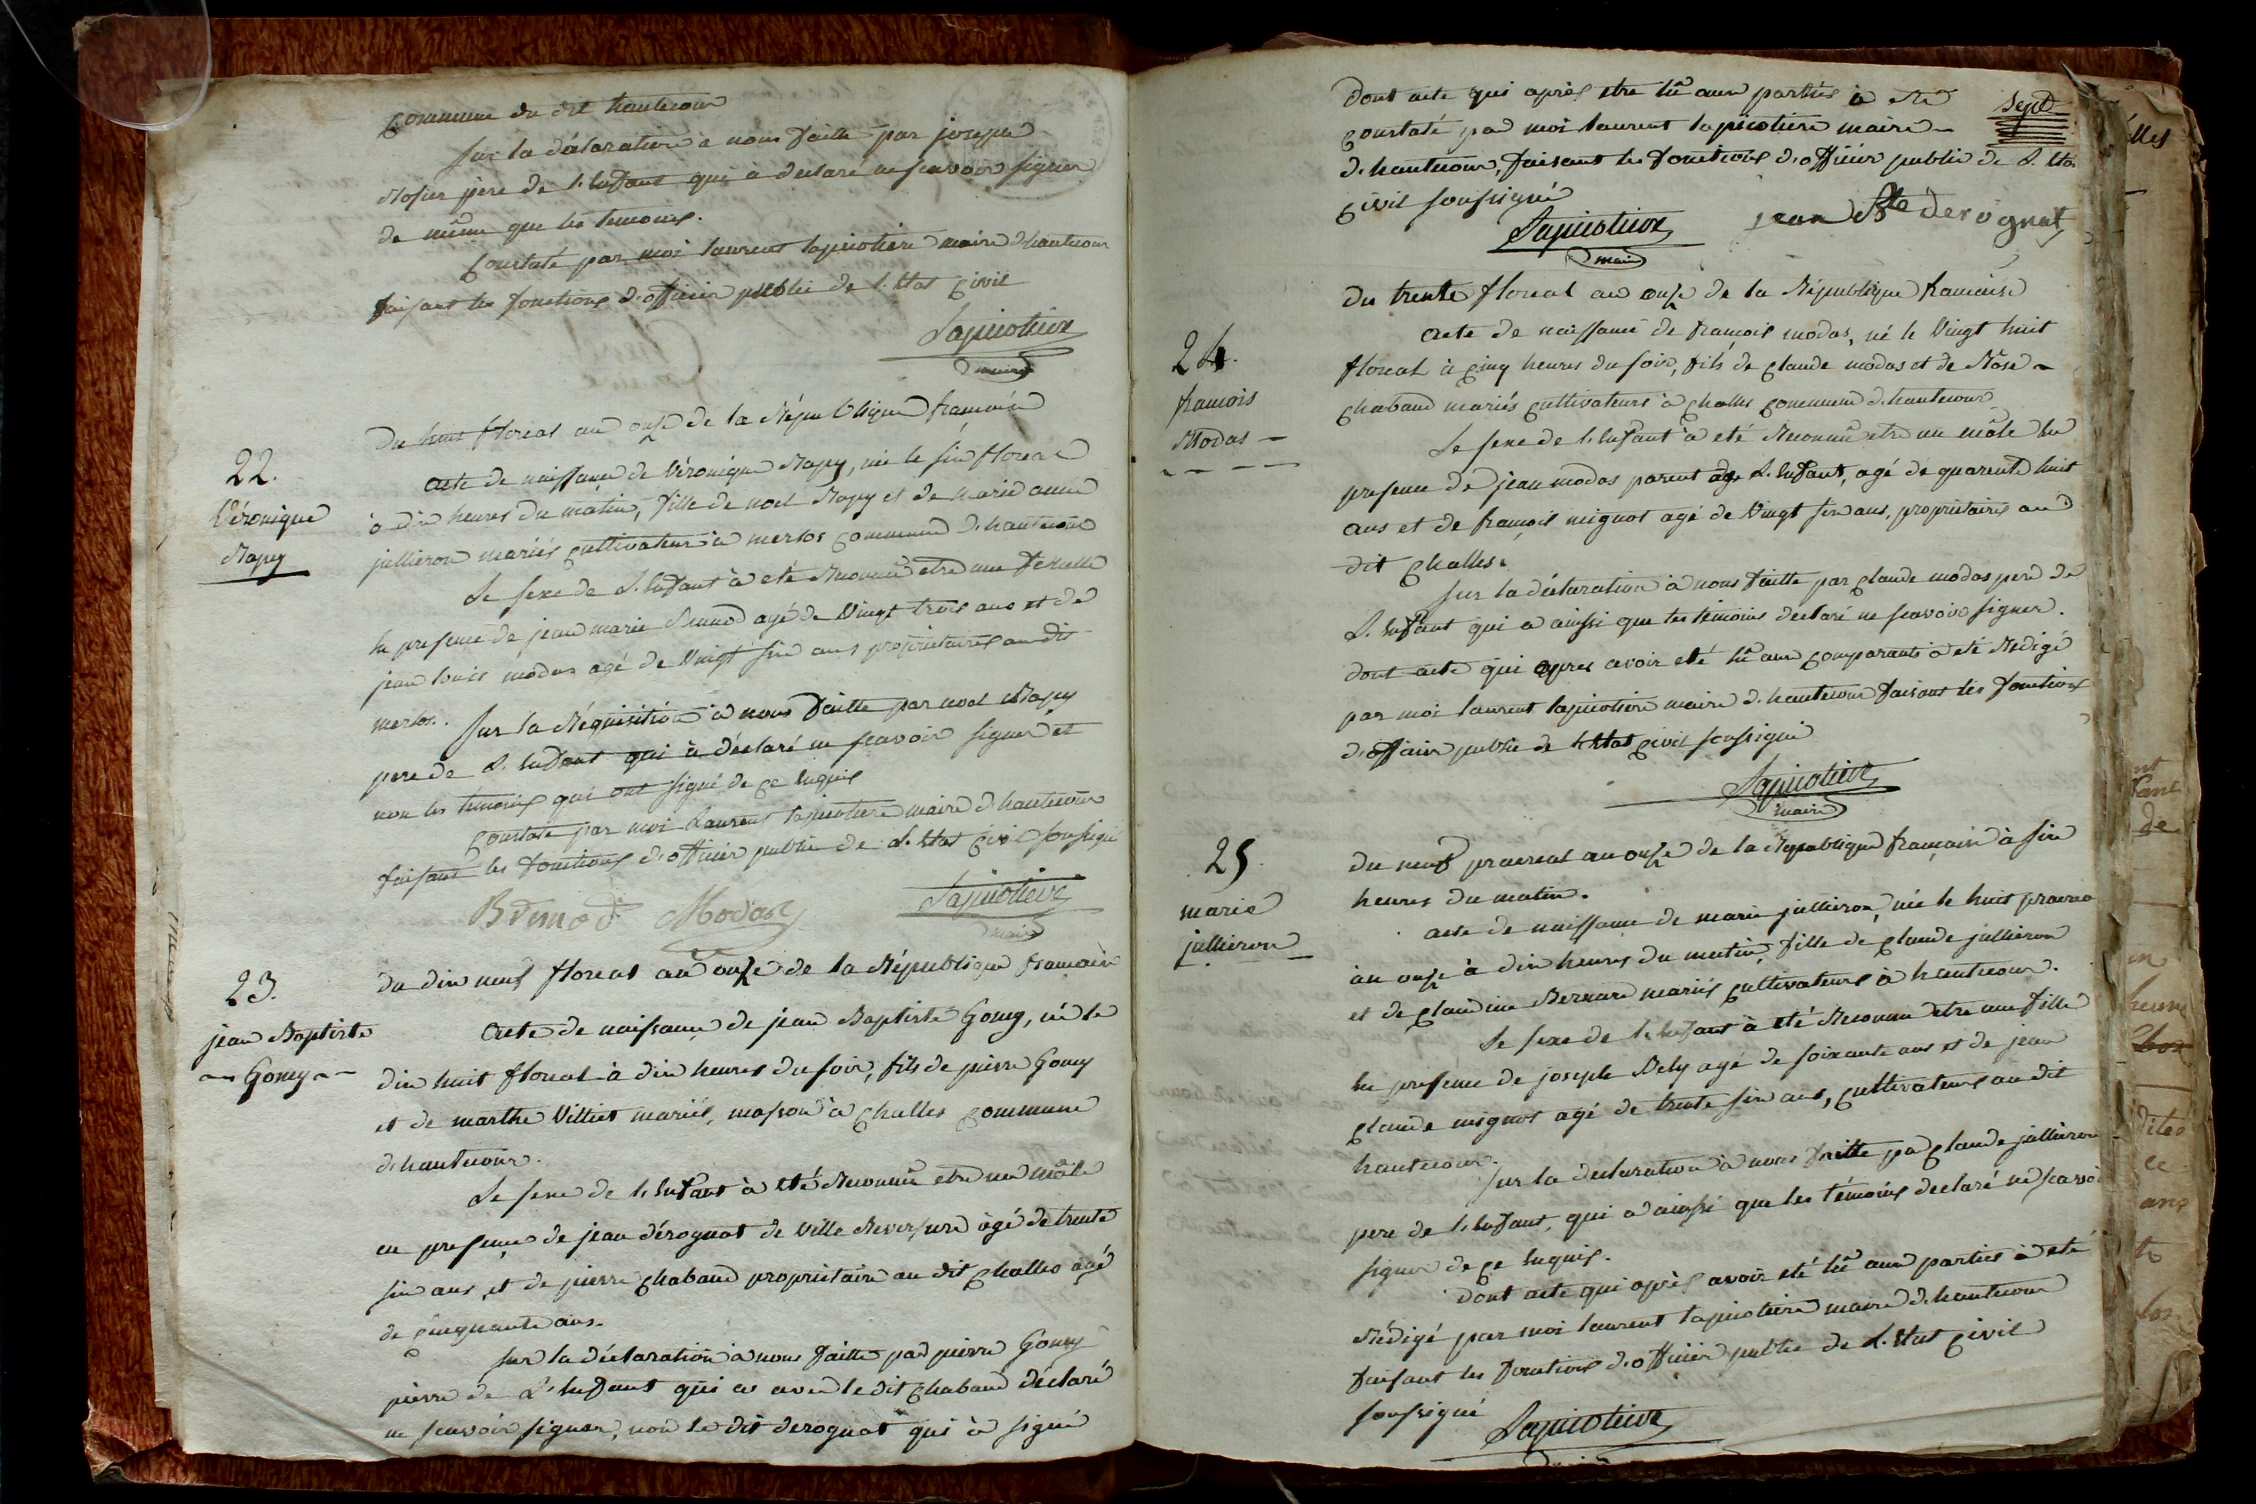 commune du dit hautecour
sur la déclaration à nous faitte par joseph
Rosier père de l'enfant qui à declaré ne scavoir signer
de même que les temoins.
Constaté par moi laurent lapicotiere maire d'hautecour
faisant les fonctions d'officier public de l'Etat civil
Lapicotiere
maire
22.
Véronique
Rapy
Du huit floreal an onze de la République francaise
acte de naissance de Véronique Rapy, née le six floreal
à dix heures du matin, fille de noel Rapy et de marie anne
jullieron mariés cultivateurs à merlos commune d'hautecour
Le sexe de l'enfant à eté Reconnu etre une femelle
En presence de jean marie agé de Vingt trois ans et de
jean louis modas agé de Vingt six ans proprietaires au dit
merlos. Sur la Réquisition à nous faitte par noel Rapy
pere de L'enfant qui à déclaré ne scavoir signer et
non les temoins qui ont signé de ce Enquis
Constaté par moi Laurent lapicotiere maire d'hautecour
faisant les fonctions d'officier public de L'Etat civil soussigné
Modas Lapicotiere
maire
23.
jean Baptiste
Gomy
du dix neuf floreal an onze de la République francaise
Acte de naissance de jean Baptiste Gomy, né le
dix huit floreal à dix heures du soir, fils de pierre Gomy
et de marthe Villiet mariés, masson à Challes commune
d'hautecour.
Le sexe de l'enfant à eté Reconnu etre un mâle
en presence de jean dérognat de Ville Reversure àgé de trente
six ans, et de pierre chaband propriétaire au dit Challes âgé
de cinquante ans.
sur la déclaration à nous faitte par pierre Gomy
pierre de L'enfant qui a avec le dit chaband déclaré
ne scavoir signer, non le dit derognat qui à signé
Dont acte qui après etre lû aux parties à eté
Sept
constaté par moi laurent lapicotiere maire
d'hautecour, faisant les fonctions d'officier public de L'Etat
civil soussigné
Lapicotiere jean Bte derognat
maire
24.
francois
Modas
du trente floreal an onze de la République francaise
Acte de naissance de francois modas, né le Vingt huit
floreal à cinq heures du soir, fils de claude modas et de Rose
chaband mariés cultivateurs à challes commune d'hautecour
Le sexe de l'enfant à eté Reconnu etre un mâle En
presence de jean modas parent de L'enfant, agé de quarente huit
ans et de francois mignot agé de Vingt six ans, proprietaires au
dit challes.
sur la déclaration à nous faitte par claude modas pere de
L'enfant qui a ainssi que les temoins declaré ne scavoir signer.
dont acte qui apres avoir eté lû aux comparants à eté Redigé
par moi laurent lapicotiere maire d'hautecour faisant les fonctions
d'officier public de l'Etat civil soussigné
Lapicotiere
maire
25.
marie
jullieron
du neuf prairial an onze de la Republique francaise à six
heures du matin.
acte de naissance de marie jullieron, née le huit prairial
an onze à dix heures du matin, fille de claude jullieron
et de claudine Bernard mariés cultivateurs à hautecour.
Le sexe de l'enfant à eté Reconnu etre une fille
En presence de joseph Bely agé de soixante ans et de jean
claude mignot agé de trente six ans, cultivateurs au dit
hautecour.
sur la declaration à nous faitte par claude jullieron
pere de l'enfant, qui a ainssi que les témoins declaré ne scavoir
signer de ce Enquis.
dont acte qui après avoir eté lû aux parties à eté
Rédigé par moi laurent lapicotiere maire d'hautecour
faisant les fonctions d'officier public de L'Etat civil
soussigné Lapicotiere